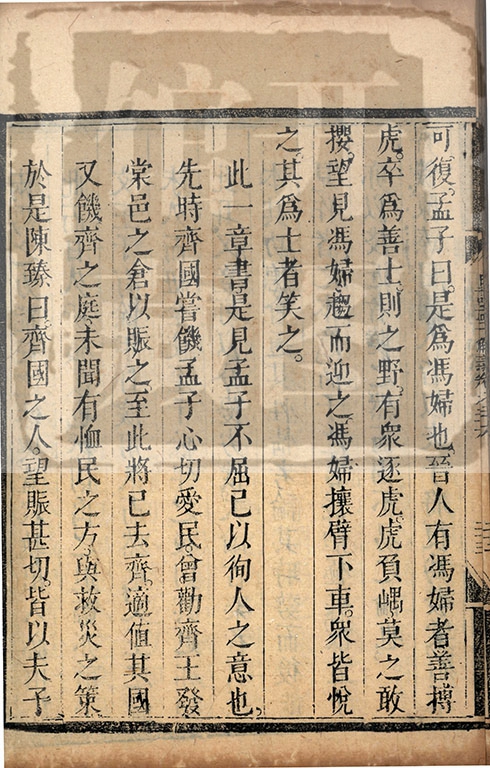 可復孟子曰是為馮婦也晉人有馮婦者善搏
虎卒為善士則之野有眾逐虎虎負嵎莫之敢
攖望見馮婦趨而迎之馮婦攘臂下車眾皆悅
之其為士者笑之
此一章書是見孟子不屈己以徇人之意也
先時齊國嘗饑孟子心切愛民曾勸齊王發
棠邑之倉以賑之至此將已去齊適值其國
又饑齊之庭未聞有恤民之方與救災之策
於是陳臻曰齊國之人望賑甚切皆以夫子